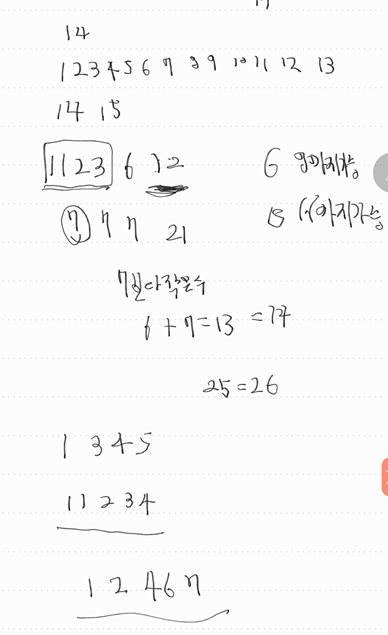 14
1 2 3 4 5 6 7 8 9 10 11 12 13
14 15
1 1 2 3 6 12 6
7 7 7 21 15
7보다작은수
6 + 7 = 13 = 14
25 = 26
1 3 4 5
1 1 2 3 4
1 2 4 6 7